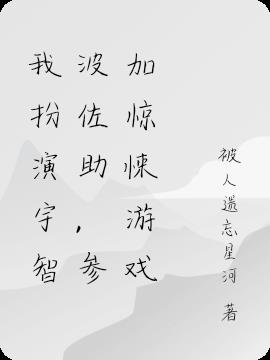 我扮演宇智
波佐助，参
加惊悚游戏
被人遗忘星河 著